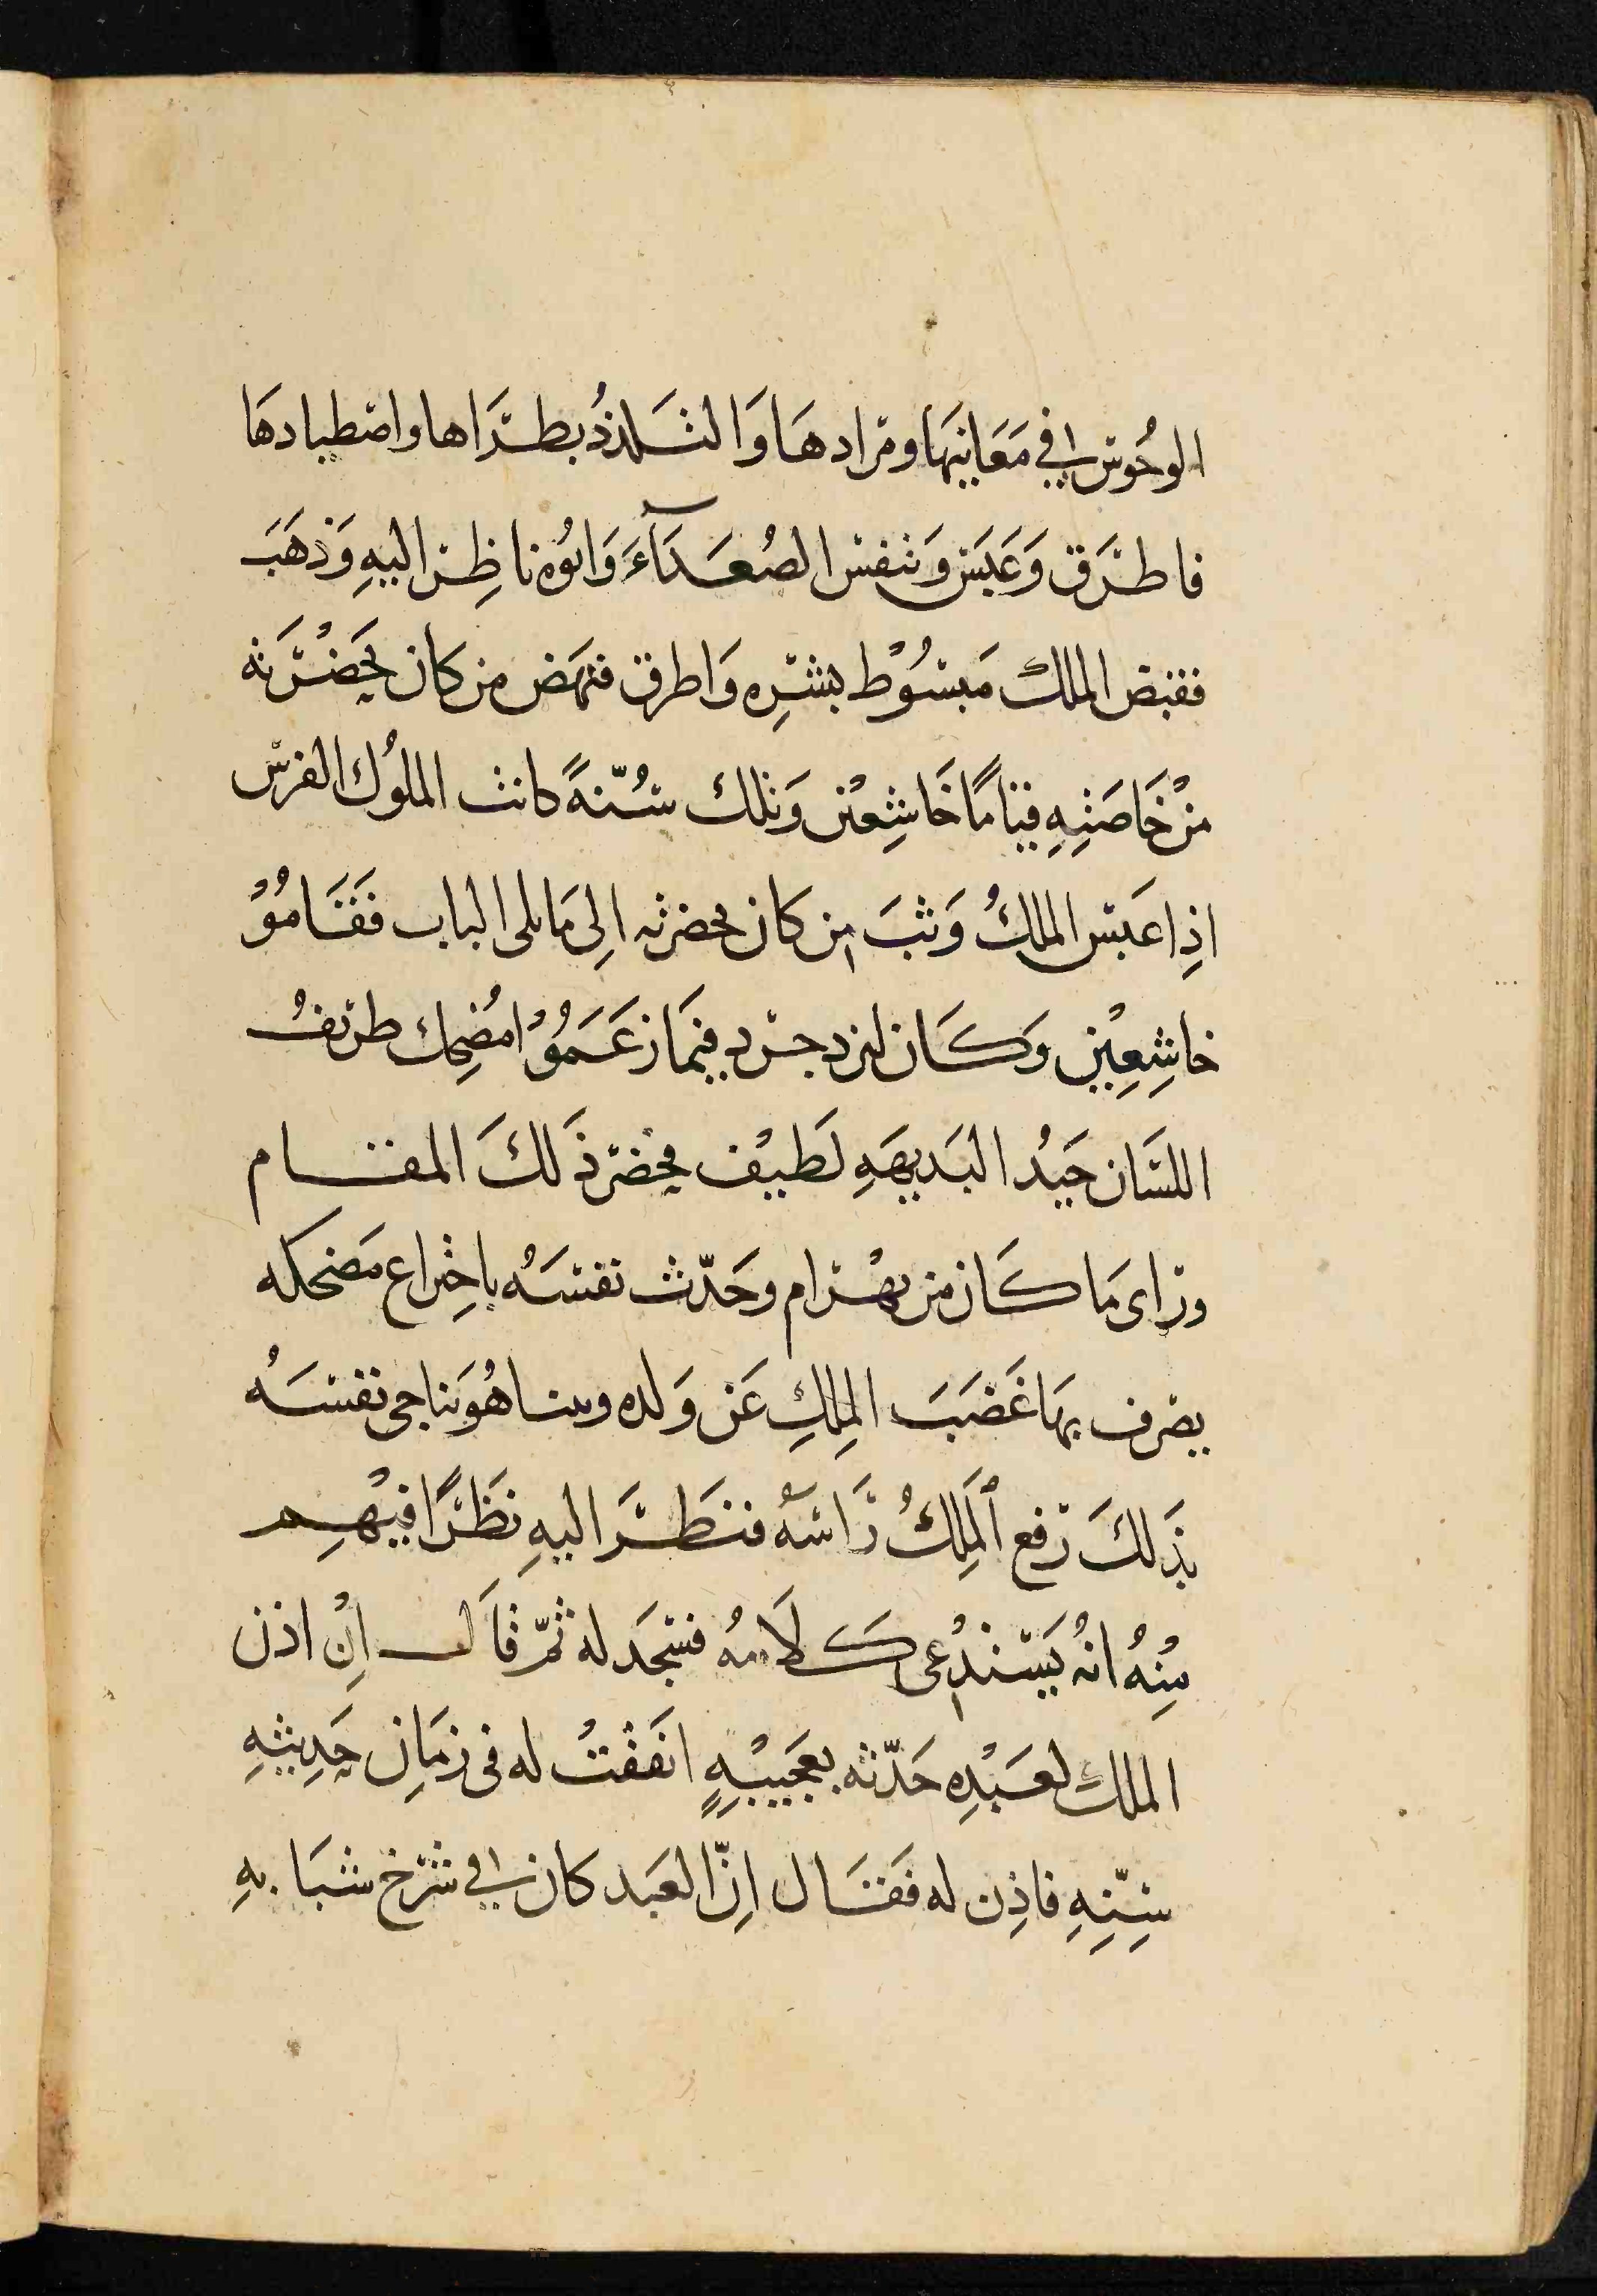 الوحُوش في مَعَانيهَا ومرادهَا وَالتَلذذُ بطرَادها واصطيادهَا
فاطرَق وَعَبَسَ وَتنفس الصُعَدَآءَ وَابُوه ناظِر اليهِ وَذهَبَ
فقبض الملك مَبسُوْط بشرِه وَاطرق فنهَض من كان بحَضْرَته
منْ خَاصَتِهِ قيامًا خَاشِعيْن وَتلك سُنّةً كانت الملوُك الفرس
اذِا عَبَس الملكُ وَثبَ من كان بحضرته الِى مَا يلى الباب فَقَامُوْ
خاشِعِيْن وَكَان ليزدجرد فيْمَا زعَمَوُ امُضحِك طريفُ
اللسَان جَيدُ البَديهَهِ لَطيْف فحضر ذَلكَ المقام
وراى مَا كَان من بهْرام وحَدّث نفسَهُ باختِراع مَضحكه
يصرف بهَا غَضَبَ المِلكِ عَن وَلده وبينا هُوَ يناجى نفسَهُ
بذَلكَ رَفع المَلِكُ رَاسَهُ فنَظَرَ اليهِ نظَرًا فيْهِم
مِنهُ انهُ يَسْتدْعى كَلَامهُ فسَجَد له ثمّ قاَل اِنْ اذن
الملك لعَبْدِه حَدّثه بعَجيْبهٍ اتفَقتْ له فى زمَانِ حَدِيثِهِ
سِنّهِ فاذِن له فَقَال اِنّ العَبد كان في شرْخ شبَابهِ